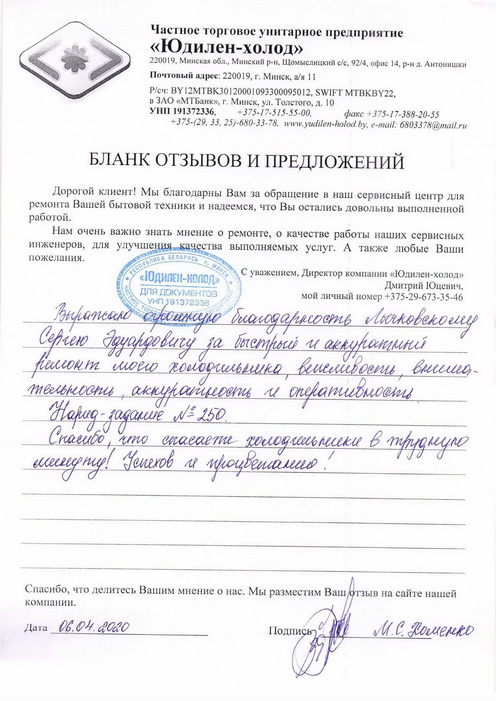 Частное торговое унитарное предприятие
«Юдилен-холод»
220019, Минская обл., Минский р-н, Щомыслицкий с/с, 92/4, офис 14, р-н д. Антонишки
Почтовый адрес: 220019, г. Минск, а/я 11
Р/сч: BY12MTBK30120001093300095012, SWIFT MTBKBY22,
в ЗАО «МТБанк», г. Минск, ул. Толстого, д. 10
УНП 191372336, +375-17-515-55-00, факс +375-17-388-20-55
+375-(29, 33, 25)-680-33-78, www.yudilen-holod.by, e-mail: 6803378@mail.ru
БЛАНК ОТЗЫВОВ И ПРЕДЛОЖЕНИЙ
Дорогой клиент! Мы благодарны Вам за обращение в наш сервисный центр для
ремонта Вашей бытовой техники и надеемся, что Вы остались довольны выполненной
работой.
Нам очень важно знать мнение о ремонте, о качестве работы наших сервисных
инженеров, для улучшения качества выполняемых услуг. А также любые Ваши
пожелания.
С уважением, Директор компании «Юдилен-холод»
Дмитрий Юцевич,
мой личный номер +375-29-673-35-46
РЕСПУБЛИКА БЕЛАРУСЬ г. МИНСК
«Юдилен-холод»
ДЛЯ ДОКУМЕНТОВ
УНП 191372336
Выражаю огромную благодарность Лычковскому
Сергею Эдуардовичу за быстрый и аккуратный
ремонт моего холодильника, вежливость, внима-
тельность, аккуратность и оперативность
Наряд-задание № 250.
Спасибо, что спасаете холодильники в трудную
минуту! Успехов и процветания!
Спасибо, что делитесь Вашим мнение о нас. Мы разместим Ваш отзыв на сайте нашей
компании.
Дата 06.04.2020 Подпись М.С. Хоменко